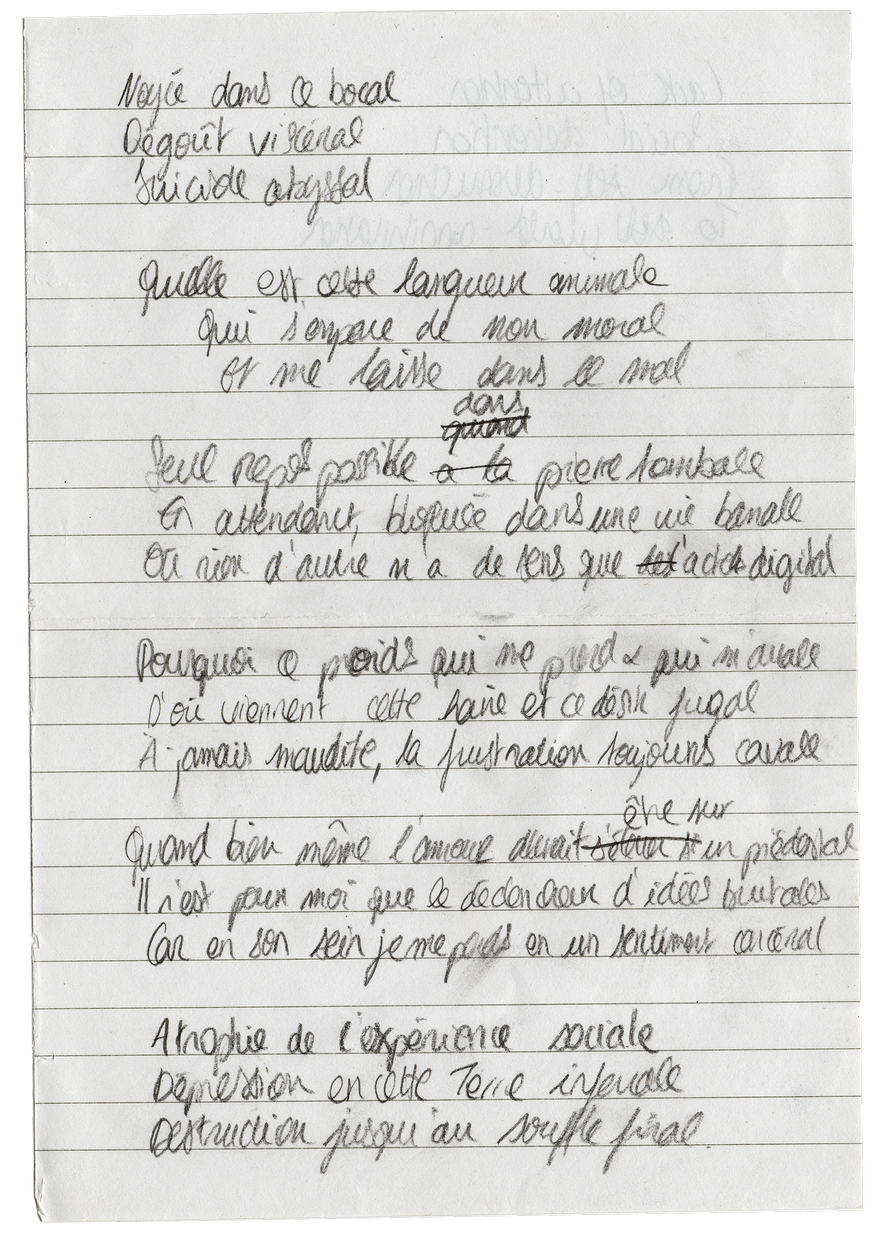 Noyée dans ce bocal
Dégoût viscéral
Suicide abyssal
Quelle est cette langueur animale
Qui s'empare de mon moral
Et me laisse dans ce mal
dans
quand
Seul repos possible a la pierre tombale
En attendant, bloquée dans une vie banale
Où rien d'autre n'a de sens que digital
Pourquoi ce poids qui me prend & qui m'avale
D'où viennent cette haine et ce désir fugal
À jamais maudite, la frustration toujours cavale
être sur
Quand bien même l'amour devrait un piédestal
Il n'est pour moi que le déclencheur d'idées brutales
Car en son sein je me perds en un sentiment carcéral
Atrophie de l'expérience sociale
Dépression en cette Terre infernale
Destruction jusqu'au souffle final.